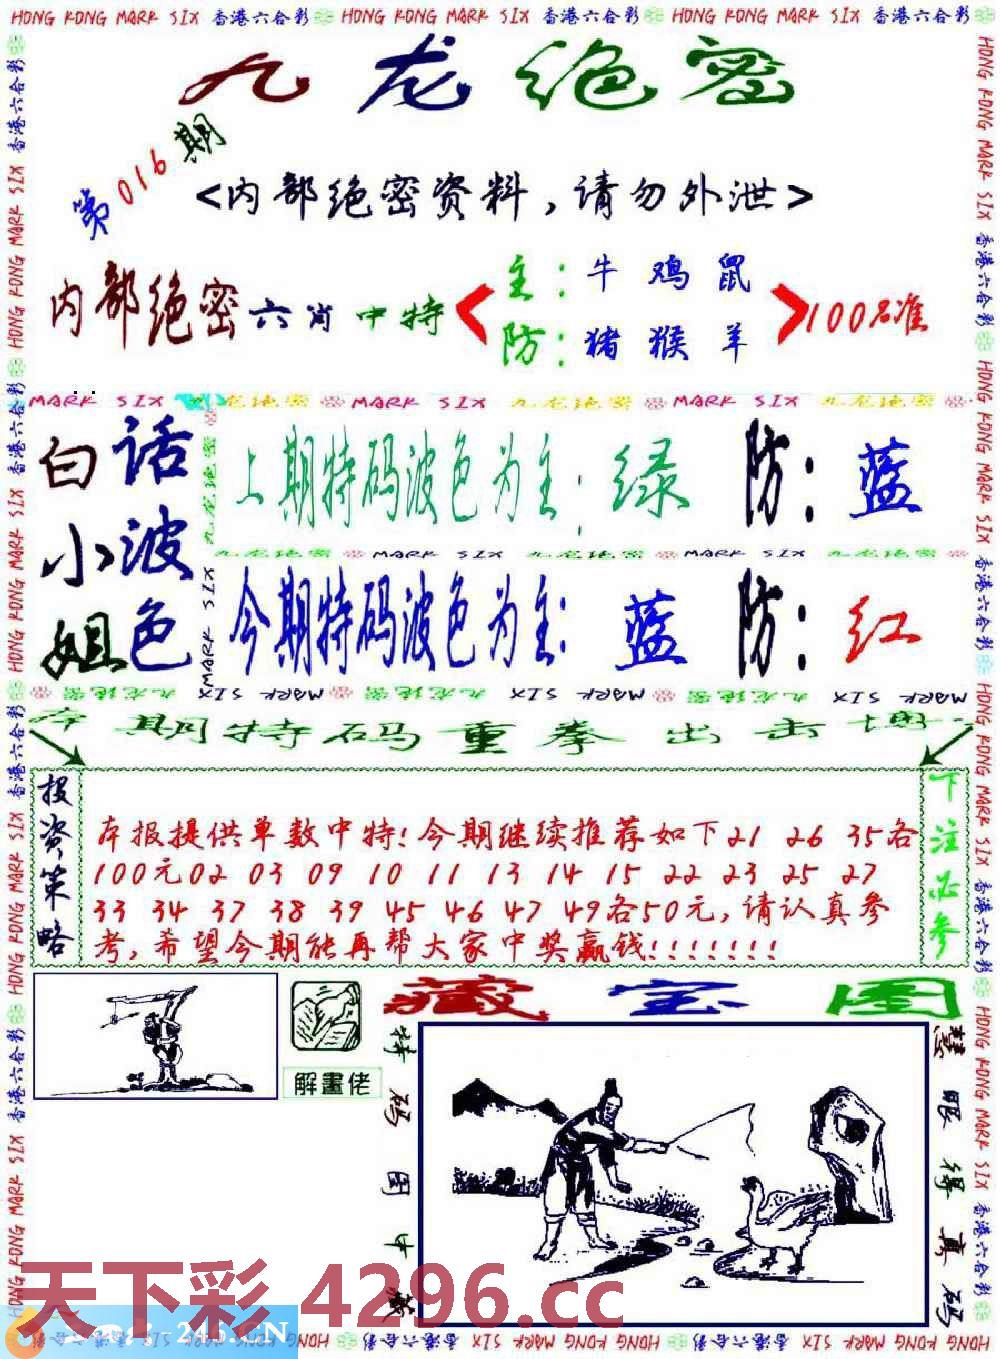 HONG KONG MARK SIX 香港六合彩 HONG KONG MARK SIX 香港六合彩 HONG KONG MARK SIX 香港六合彩
九龙绝密
第016期
<内部绝密资料,请勿外泄>
内部绝密六肖中特
主:牛 鸡 鼠
防:猪 猴 羊
100%准
MARK SIX 九龙绝密 MARK SIX 九龙绝密 MARK SIX 九龙绝密
白小姐
话波色
上期特码波色为主:绿 防:蓝
九龙绝密 MARK SIX 九龙绝密 MARK SIX 九龙绝密
今期特码波色为主:蓝 防:红
本期特码重拳出击
投资策略
本报提供单数中特!今期继续推荐如下21 26 35各
100元02 03 09 10 11 13 14 15 22 23 25 27
33 34 37 38 39 45 46 47 49各50元,请认真参
考,希望今期能再帮大家中奖赢钱!!!!!!!
下注必参
解畫佬
藏宝图
特码图中藏
慧眼得真码
天下彩 4296.cc
246.CN